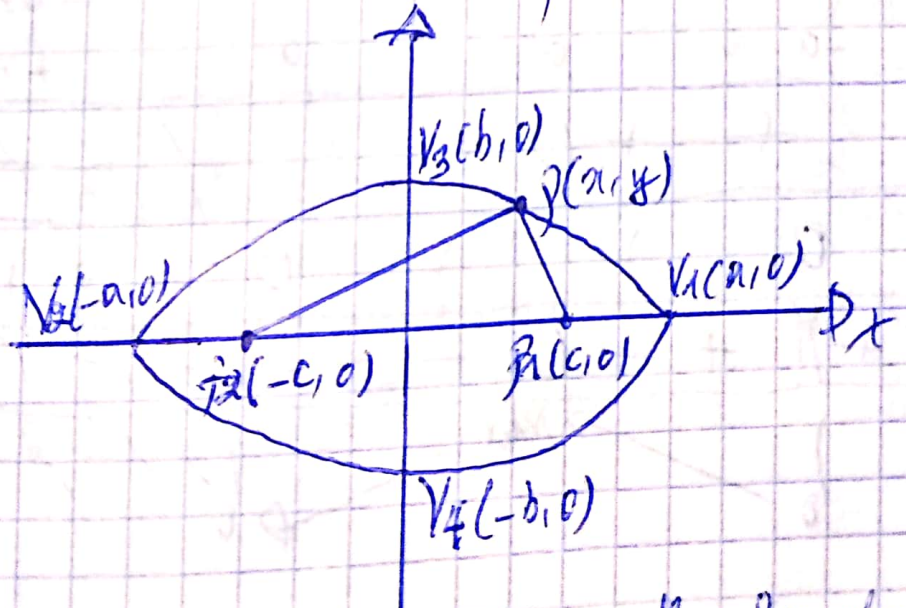 V3(b,0)
P(x,y)
V2(-a,0)
V1(a,0)
x
F2(-c,0)
F1(c,0)
V4(-b,0)